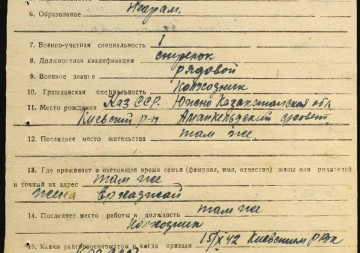 6. Образование Неграм.
7. Военно-учетная специальность 1
8. Должностная квалификация стрелок
9. Военное звание рядовой
10. Гражданская специальность Колхозник
11. Место рождения Каз ССР. Южно Казахстанская обл
Киевский р-н
12. Последнее место жительства там же.
13. Где проживает в настоящее время семья (фамилия, имя, отчество) жены или родителей
и точный их адрес там же
жена
14. Последнее место работы и должность там же
Колхозник
15. Каким райвоенкоматом и когда призван 15/X 42 Киевским РВк